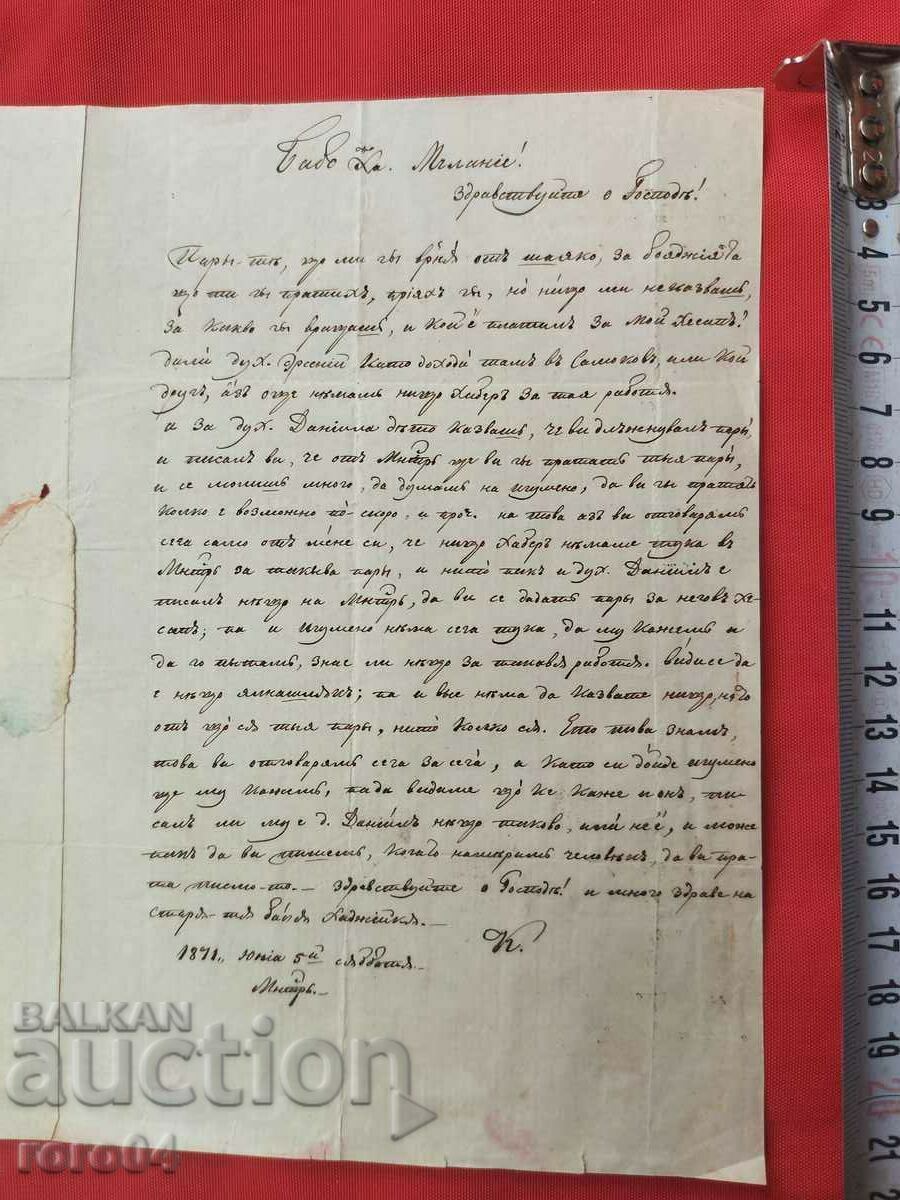 Бабо Ха. Мъланіе!
Здравствуйте о Господѣ!
Пары-тѣ, що ми гы врня отъ шаяко, за бояджіята
що ти гы пратихъ, пріяхъ гы, но нищо ми не казвашъ,
за какво гы вращашъ, и кой е платилъ за мой хесапъ!
дали дух. Арсеній като доходи тамъ въ Самоковъ, или кой
другъ, азъ още нѣмамъ нищо хаберъ за тая работя.
а за дух. Даніила дѣто казвашъ, че ви длъжнувалъ пары,
и писалъ ви, че отъ Мнтрь ще ви гы пратятъ тыя пары,
и се молишъ много, да думамъ на игумено, да ви гы пратятъ
колко е возможно по-скоро, и проч. на това азъ ви отговарямъ
сега само отъ мене си, че нищо хаберъ нѣмаме тука въ
Мнтрь за такыва пары, и нито пакъ и дух. Даніилъ е
писалъ нѣщо на Мнтрь, да ви се дадатъ пары за неговъ хе-
сапъ; па и игумено нѣма сега тука, да му кажемъ и
да го пытамъ, знае ли нѣщо за такавя работя. види се да
е нѣщо ; па и вые нѣма да казвате нищо,
отъ що ся тыя пары, нито колко ся. Ето това знамъ,
това ви отговарямъ сега за сега, а като си дойде игумено
ще му кажемъ, па да видиме що ке каже и онъ, пи-
салъ ли му е д. Даніилъ нѣщо таково, или нее, и може
пакъ да ви пишемъ, когато намѣримъ человѣкъ, да ви пра-
тя писмо-то.— Здравствуйте о Господѣ! и много здраве на
старя-тя бабя Хаджійкя.—
К.
1871,, юніа 5й сяббота.—
Мнтрь.—
BALKAN
auction
roro04
3
4
5
6
7
8
9
10
11
12
13
14
15
16
17
18
19
20
21